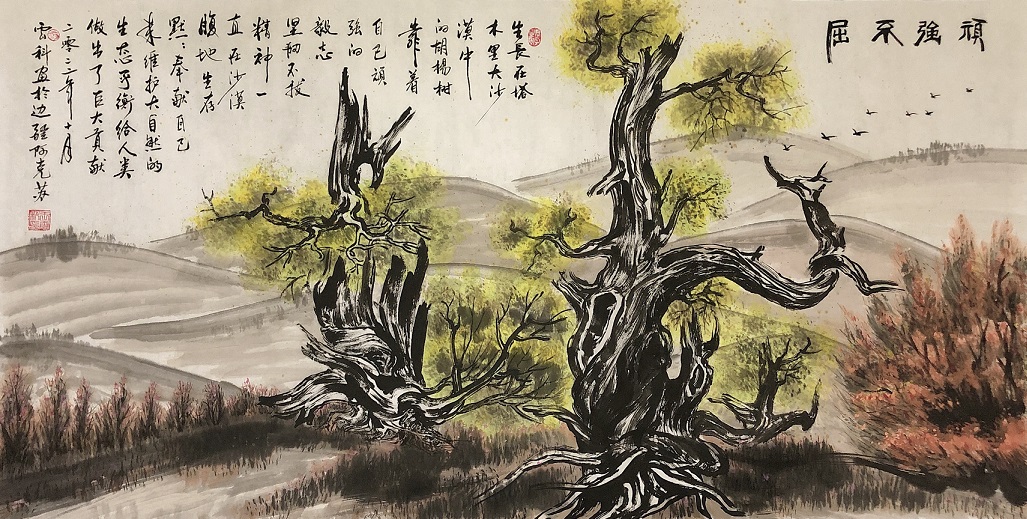 頑強不屈
生長在塔
木里大沙
漠中
的胡楊树
靠着
自己頑
強的
毅志
坚韧不拔
精神一
直在沙漠
腹地生存
默々奉献自己
来维护大自然的
生态平衡给人类
做出了巨大贡献
二零二二年十月
雲科画於边疆阿克苏